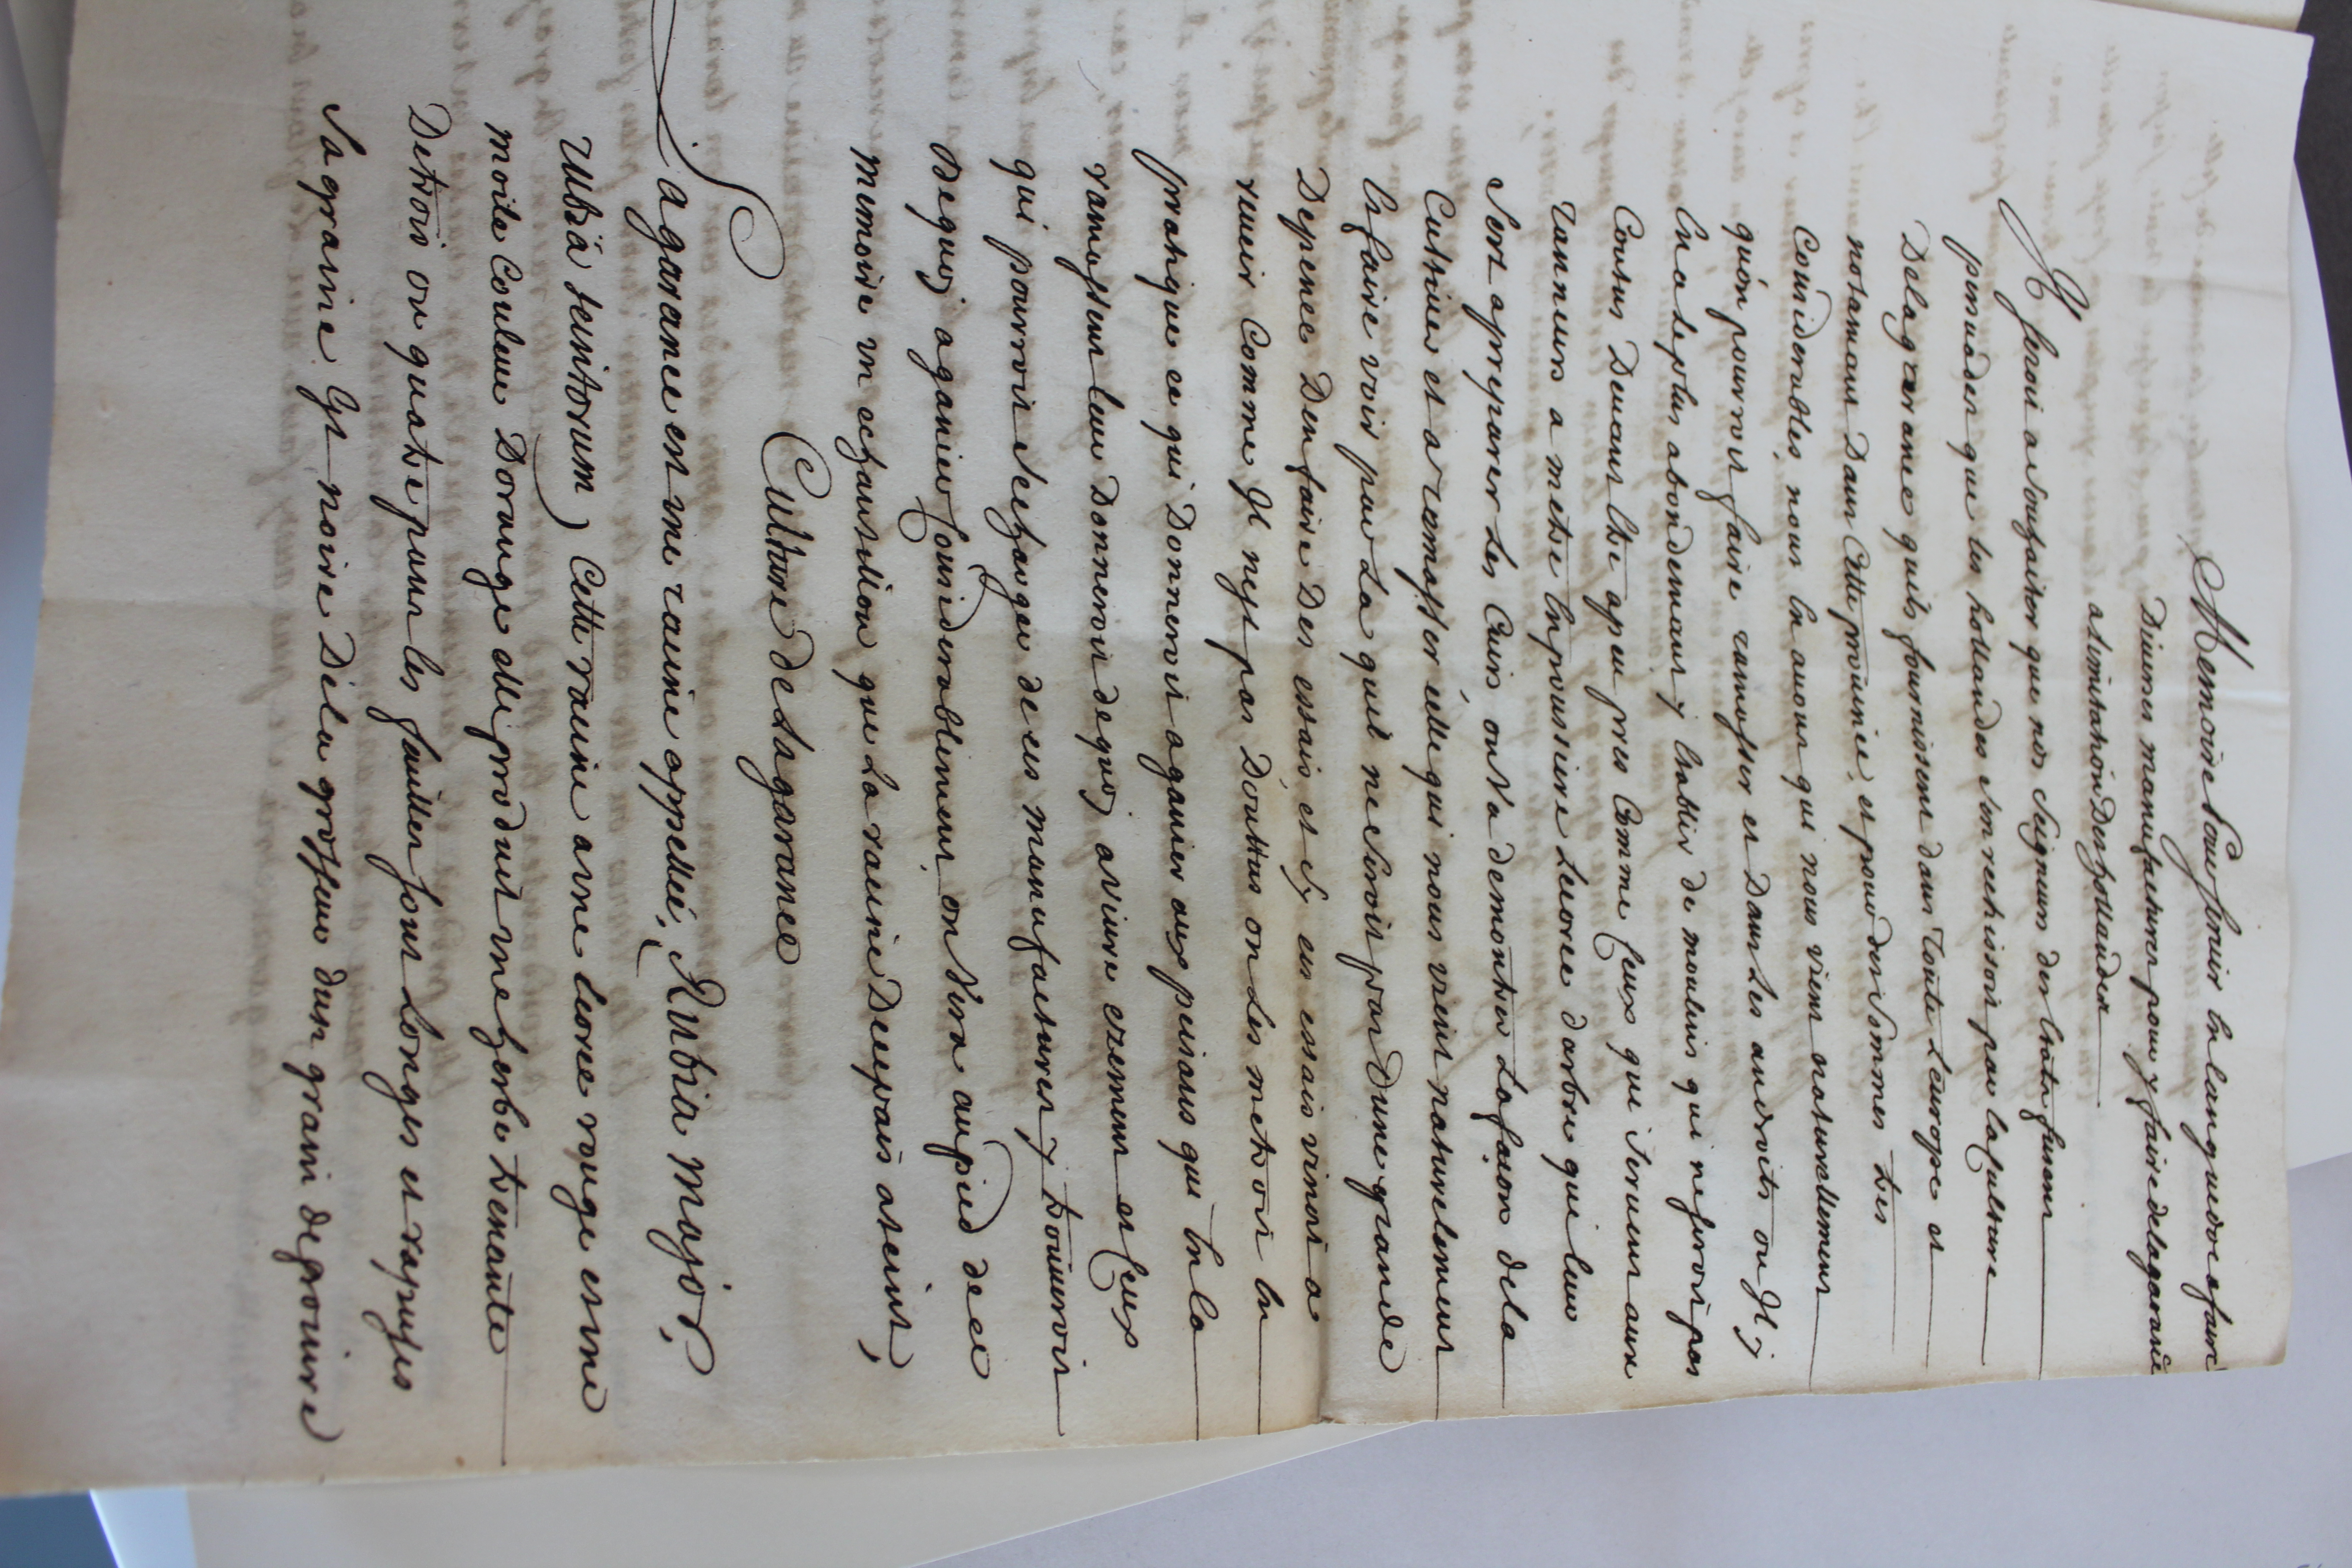 Memoire Pour servir en languedoc a faire
Diverses manufactures pour y faire de la garance
a limitation Des hollandes
Il seroi a souhaiter que nos seigneurs des Etats fusent
persuades que les hollandes senrechissoit par la culture
De la garance quils fournissent dans toute Leurope et
notamant Dans Cette province, et pour des sommes tres
Considerables, nous en avons qui nous vient naturellement
quón pourroit faire ramasser et Dans Les androits ou Il y
En a le plus abondemant y Etablir de moulins qui ne seroit pas
Coutus Devant Etre apeu pres Comme Ceux qui servent aux
Tanneurs a metre En poussiere Lecorce darbre qui leur
sert a preparer Les Cuirs, on va demontrer La façon de la
Cultiver et a ramasser celle qui nous vient naturelement
En faire voir par La quel ne seroit pas Dune grande
Depence Den faire Des essais et sy ces essais vinoit a
reussir Comme Il nest pas Doutteus on Les metroit En
pratique ce qui Donneroit a ganier aux peisans qui En la
ramassant leur Donneroit de quoy a vivre ezement et Ceux
qui pourroit se charger de ces manufactures y trouveroit
De quoy aganier Considerablement, on vera au pied de ce
memoire un echantillon que La racine Deepais ateint,
Culture de La garance
La garance est une racine appellée, Rubia major,
Rubia tenitorum) Cette racine a une Ecorce rouge est une
moile Couleur Dorange elle produit une herbe trenante
De trois ou quatre pans les feuilles sont Longes et rapeuses
Sa graine Est noire De la grosseur dun grain de poivre